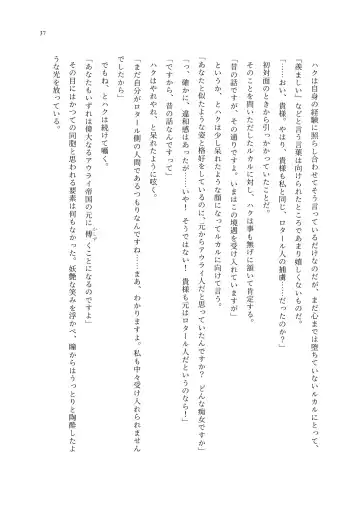 37
ハクは自身の経験に照らし合わせてそう言っているだけなのだが、まだ心までは堕ちていないルカルにとって、
「羨ましい」などと言う言葉は向けられたところであまり嬉しくないものだ。
「……おい、貴様。やはり、貴様も私と同じ、ロタール人の捕虜……だったのか？」
初対面のときから引っかかっていたことだ。
そのことを問いただしたルカルに対し、ハクは事も無げに頷いて肯定する。
「昔の話ですが、その通りですよ。いまはこの境遇を受け入れていますが」
というか、とハクは少し呆れたような顔になってルカルに向けて言う。
「あなたと似たような姿と格好をしているのに、元からアウライ人だと思っていたんですか？　どんな痴女ですか」
「っ、確かに、違和感はあったが……いや！　そうではない！　貴様も元はロタール人だというのなら！」
「ですから、昔の話なんですって」
ハクはやれやれ、と呆れたように呟く。
「まだ自分がロタール側の人間であるつもりなんですね……まあ、わかりますよ。私も中々受け入れられません
でしたから」
でもね、とハクは続けて囁く。
「あなたもいずれは偉大なるアウライ帝国の元に傅くことになるのですよ」
その目にはかつての同胞と思われる要素は何もなかった。妖艶な笑みを浮かべ、瞳からはうっとりと陶酔したよ
うな光を放っている。